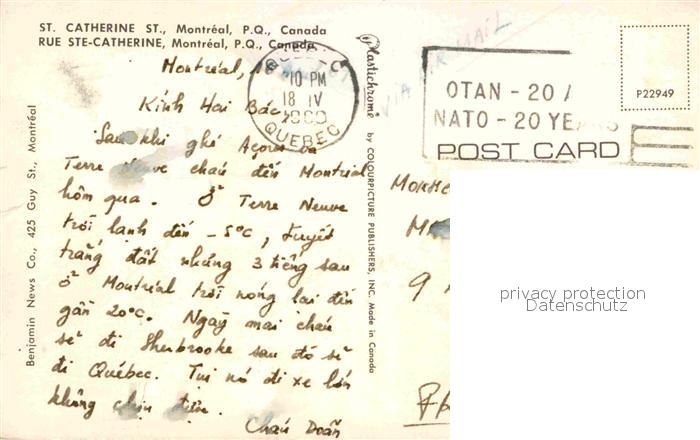 ST. CATHERINE ST., Montréal, P.Q., Canada
RUE STE-CATHERINE, Montréal, P.Q., Canada
Montréal,
Kính Hai Bác,
Sau khi ghé Açores và
Terre Neuve cháu đến Montréal
hôm qua. Ở Terre Neuve
trời lạnh đến -5°C, tuyết
trắng đất nhưng 3 tiếng sau
ở Montréal trời nóng lại đến
gần 20°C. Ngày mai cháu
sẽ đi Sherbrooke sau đó sẽ
đi Québec. Tụi nó đi xe lớn
không chịu
Cháu Doãn
Benjamin News Co., 425 Guy St., Montréal
Plastichrome by COLOURPICTURE PUBLISHERS, INC. Made in Canada
10 PM
18 IV
QUEBEC
VIA AIR MAIL
OTAN - 20
NATO - 20 YEARS
P22949
POST CARD
9
privacy protection
Datenschutz